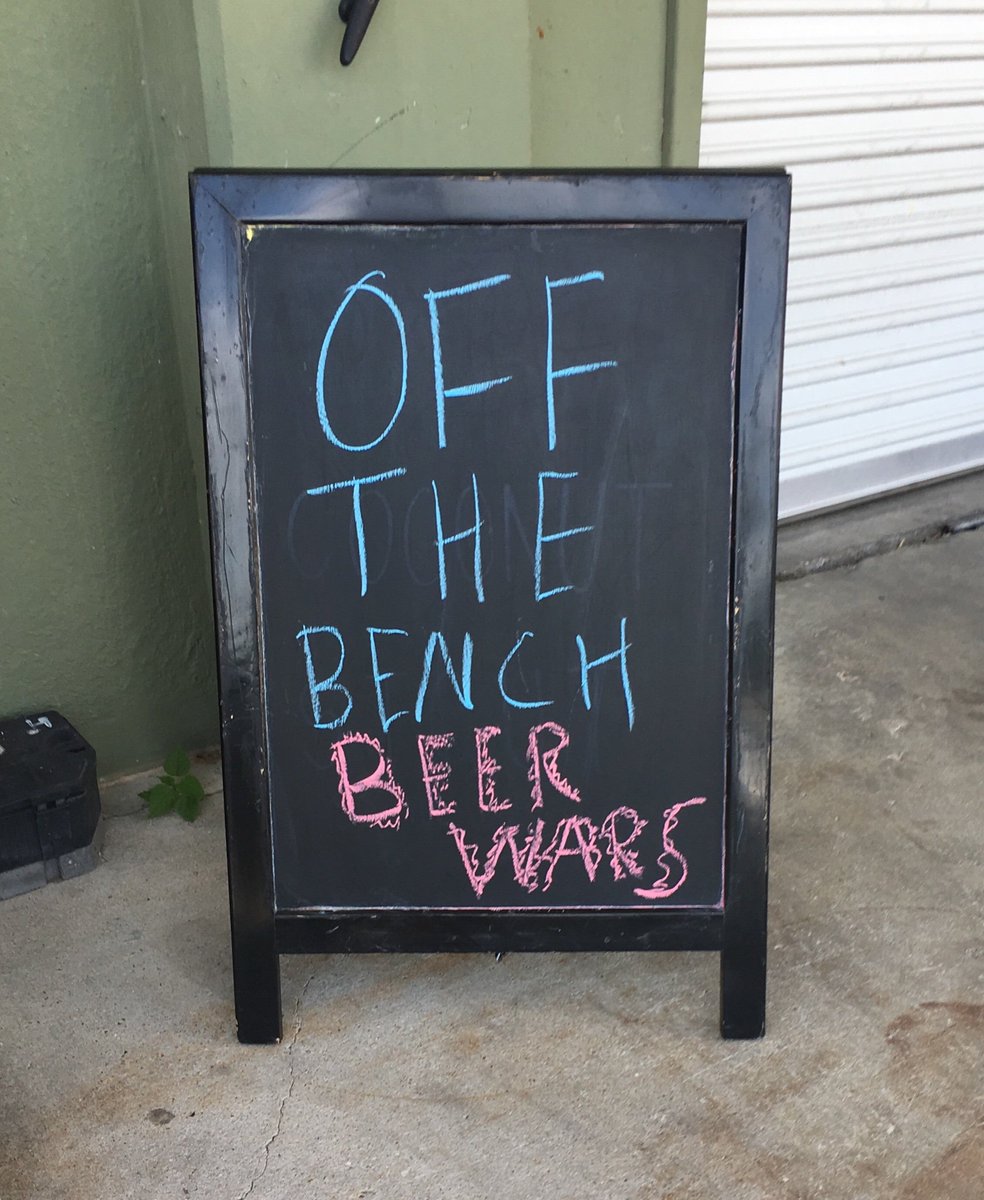 OFF
THE
COCONUT
BENCH
BEER
WARS